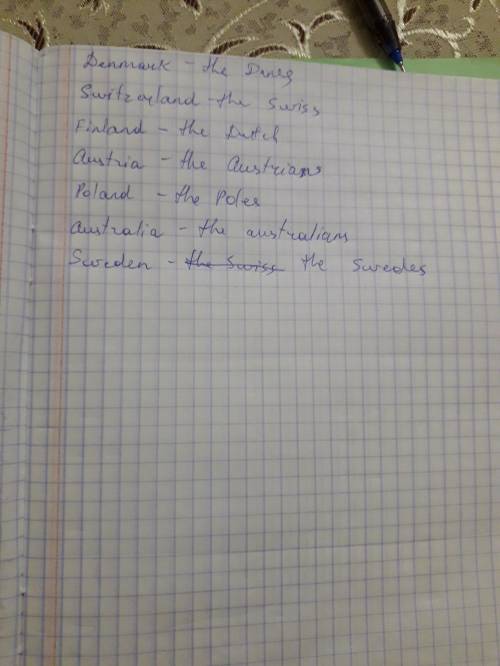 Denmark - the Danes
Switzerland - the Swiss
Finland - the Dutch
Austria - the Austrians
Poland - the Poles
Australia - the australians
Sweden - the Swiss the Swedes